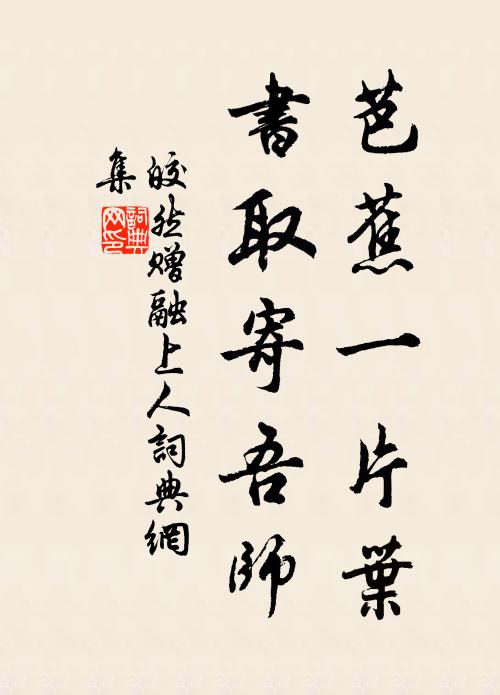 芭蕉一片葉
書取寄吾師
皎然贈融上人詞典網
集
詞典網印